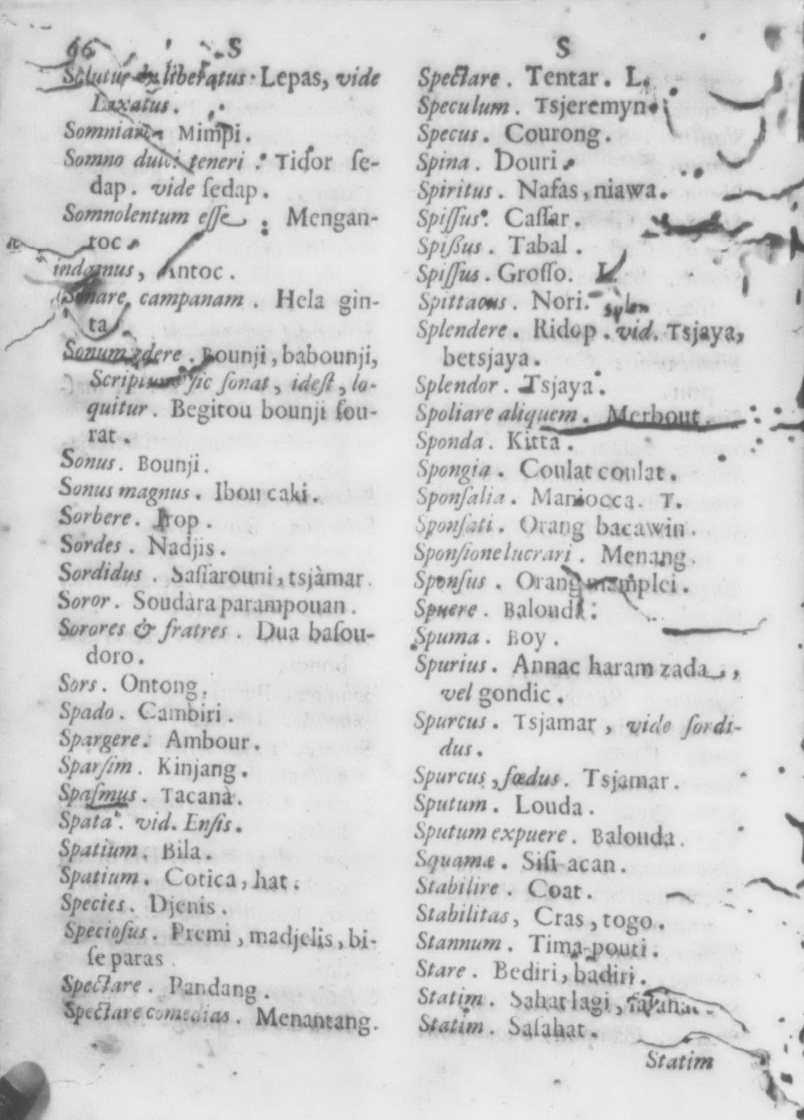 66 S
Solutus & liberatus. Lepas, vide
Laxatus.
Somniare. Mimpi.
Somno dulci teneri. Tidor ſe-
dap. vide ſedap.
Somnolentum eſſe. Mengan-
toc.
indignus, Antoc.
Sonare campanam. Hela gin-
ta.
Sonum edere. Bounji, babounji,
Scriptum sic ſonat, ideſt, lo-
quitur. Begitou bounji ſou-
rat.
Sonus. Bounji.
Sonus magnus. Ibou caki.
Sorbere. Irop.
Sordes. Nadjis.
Sordidus. Saſiarouni, tsjàmar.
Soror. Soudara parampouan.
Sorores & fratres. Dua baſou-
doro.
Sors. Ontong.
Spado. Cambiri.
Spargere. Ambour.
Sparſim. Kinjang.
Spaſmus. Tacanà.
Spata. vid. Enſis.
Spatium. Bila.
Spatium. Cotica, hat.
Species. Djenis.
Specioſus. Premi, madjelis, bi-
ſe paras.
Spectare. Pandang.
Spectare comedias. Menantang.
S
Spectare. Tentar. L.
Speculum. Tsjeremyn.
Specus. Courong.
Spina. Douri.
Spiritus. Nafas, niawa.
Spiſſus. Caſſar.
Spißus. Tabal.
Spiſſus. Groſſo. L
Spittacus. Nori.
Splendere. Ridop. vid. Tsjaya,
betsjaya.
Splendor. Tsjaya.
Spoliare aliquem. Merbout.
Sponda. Kitta.
Spongia. Coulat coulat.
Sponſalia. Maniocca. T.
Sponſati. Orang bacawin.
Sponſione lucrari. Menang.
Sponſus. Orang mamplei.
Spuere. Balouda.
Spuma. Boy.
Spurius. Annac haram zada,
vel gondic.
Spurcus. Tsjamar, vide ſordi-
dus.
Spurcus, fœdus. Tsjamar.
Sputum. Louda.
Sputum expuere. Balouda.
Squamæ. Siſi acan.
Stabilire. Coat.
Stabilitas, Cras, togo.
Stannum. Tima pouti.
Stare. Bediri, badiri.
Statim. Sahat lagi,
Statim. Saſahat.
Statim